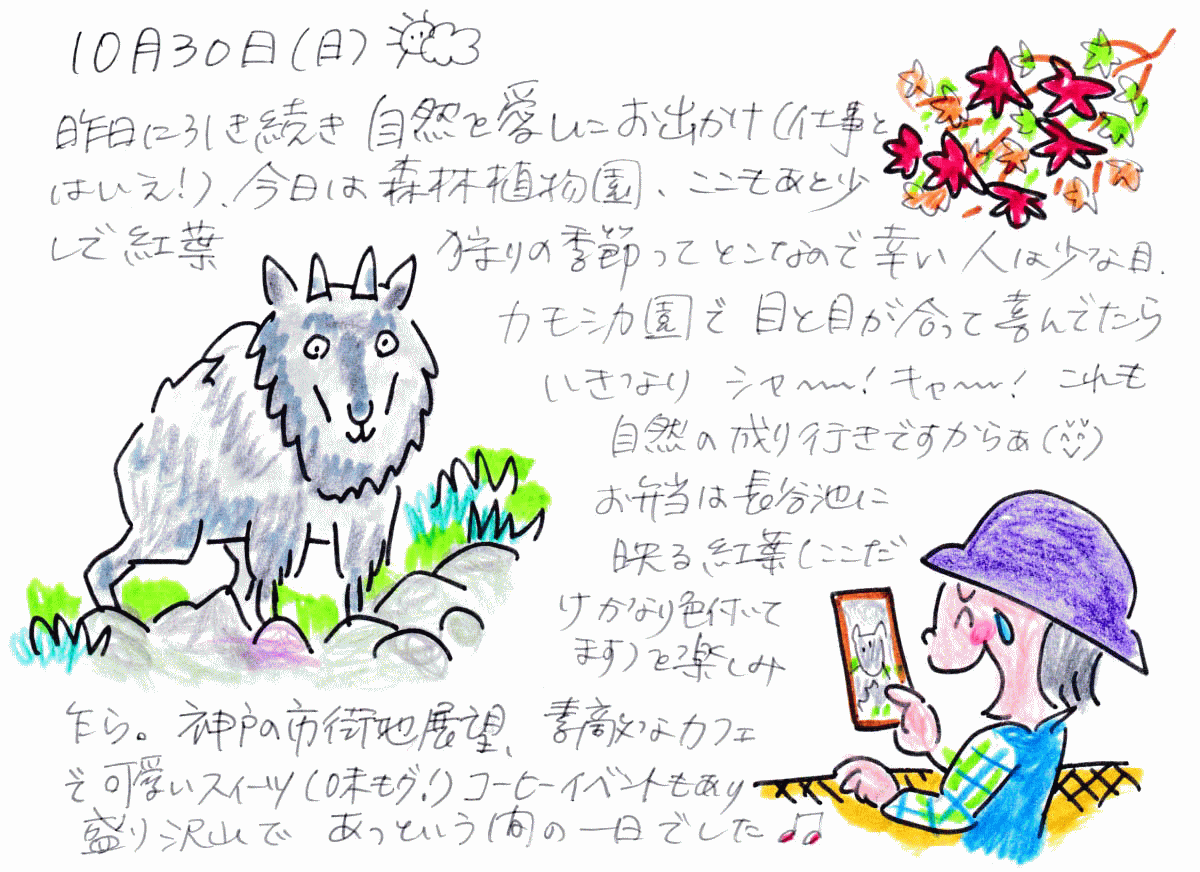 10月30日(日)
昨日に引き続き 自然を愛しにお出かけ(仕事と
はいえ!)、今日は森林植物園、ここもあと少
しで紅葉 狩りの季節ってとこなので幸い人は少な目.
カモシカ園で 目と目が合って喜んでたら
いきなり シャ〜〜! キャ〜〜! これも
自然の成り行きですからぁ(^^)
お弁当は長谷池に
映る紅葉(ここだ
けかなり色付いて
ます)を楽しみ
乍ら。神戸の市街地展望、素敵なカフェ
で可愛いスイーツ(味もグ!)コーヒーイベントもあり
盛り沢山で あっという間の一日でした♫